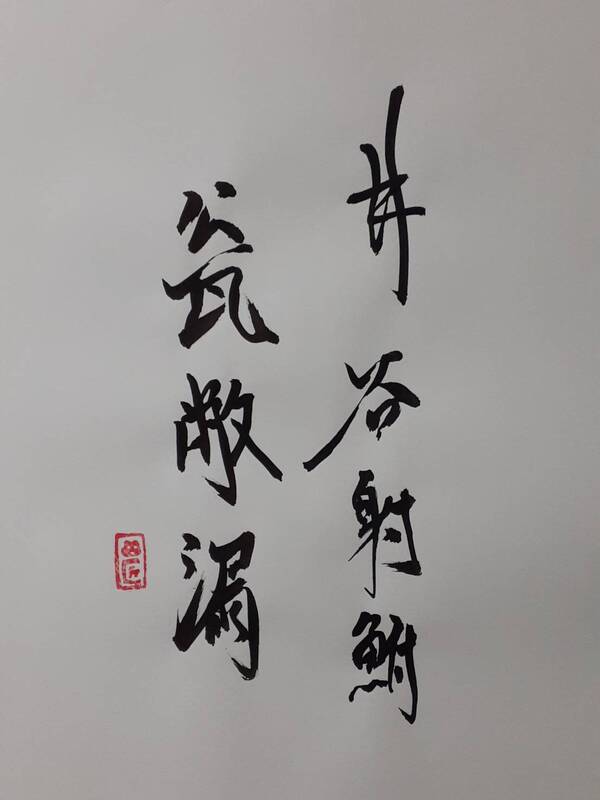 井谷射鮒
瓮敝漏